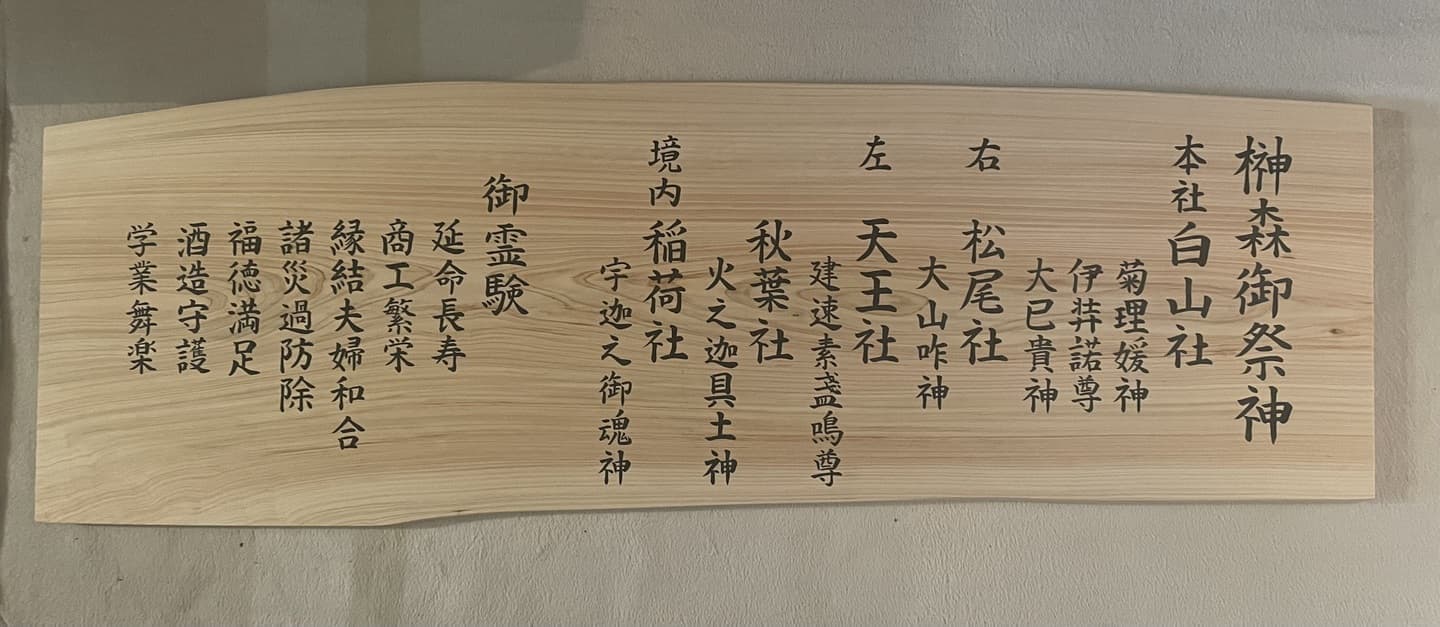 榊森御祭神
本社 白山社
菊理媛神
伊弉諾尊
大已貴神
右 松尾社
大山咋神
左 天王社
建速素盞鳴尊
秋葉社
火之迦具土神
境内 稲荷社
宇迦之御魂神
御霊験
延命長寿
商工繁栄
縁結夫婦和合
諸災過防除
福徳満足
酒造守護
学業舞楽